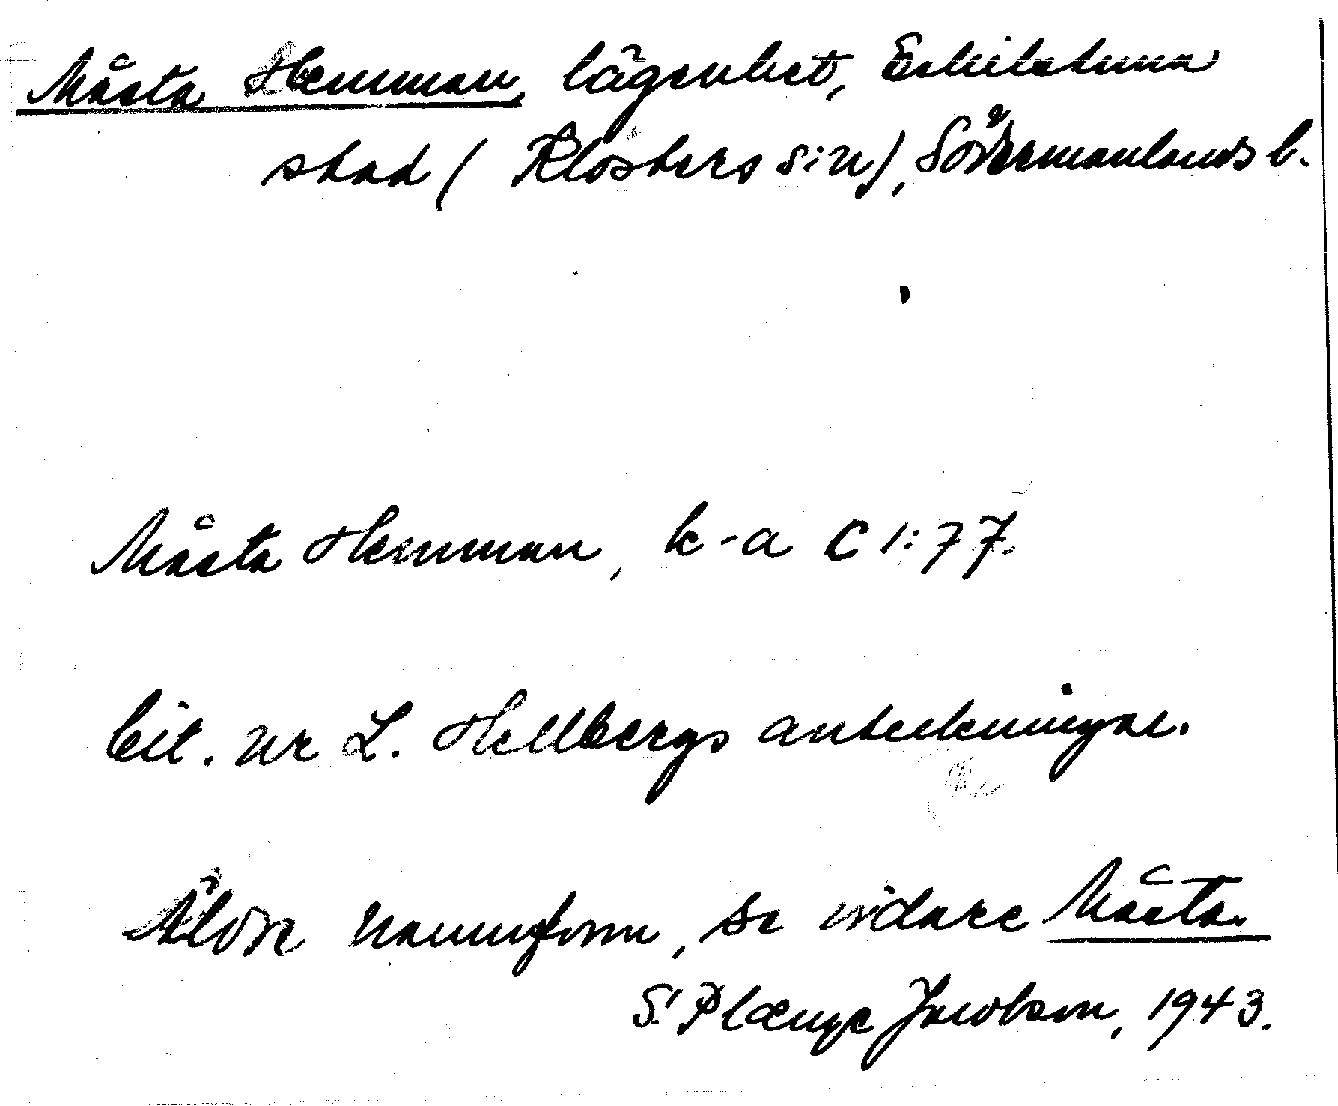 Måsta Hemman, lägenhet, Eskilstuna
stad (Klosters s:n), Södermanlands l.
Måsta Hemman, k-a C 1:77.
bit. ur L. Hellbergs anteckningar.
Äldre namnform, se vidare Måsta.
S. Plænge Jacobson, 1943.